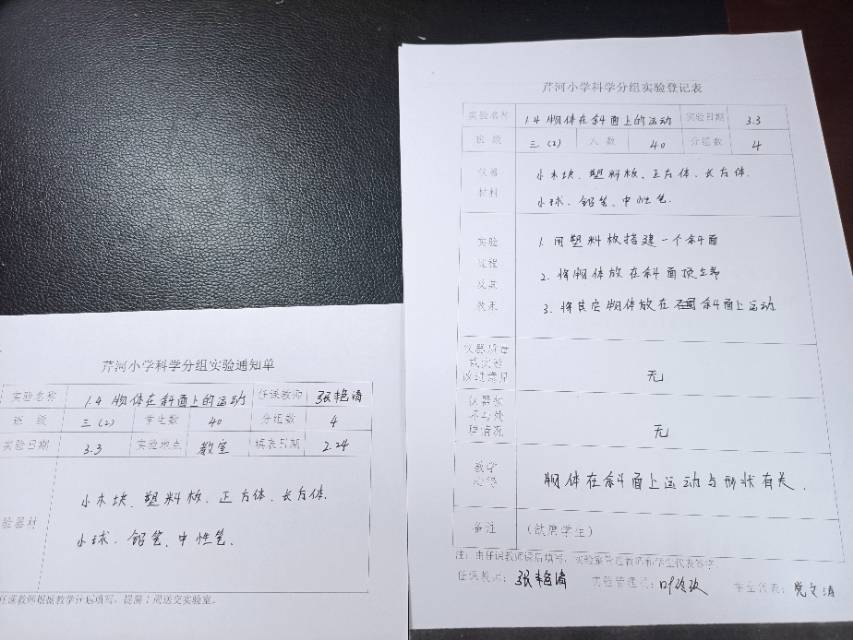 芹河小学科学分组实验通知单
实验名称 1.4 物体在斜面上的运动 任课教师 张艳涛
班 级 三(2) 学生数 40 分组数 4
实验日期 3.3 实验地点 教室 填表日期 2.24
验器材
小木块、塑料板、正方体、长方体、
小球、铅笔、中性笔、
任课教师根据教学计划填写,提前1周送交实验室。
芹河小学科学分组实验登记表
实验名称 1.4 物体在斜面上的运动 实验日期 3.3
班 级 三(2) 人 数 40 分组数 4
仪器
材料
小木块、塑料板、正方体、长方体、
小球、铅笔、中性笔、
实验
过程
及其
效果
1. 用塑料板搭建一个斜面
2. 将物体放在斜面顶端
3. 将其它物体放在斜面上运动
改进意见
无
无
教学
心得
物体在斜面上运动与形状有关.
备注 (缺席学生)
任课教师: 张艳涛 实验管理员: 学生代表: